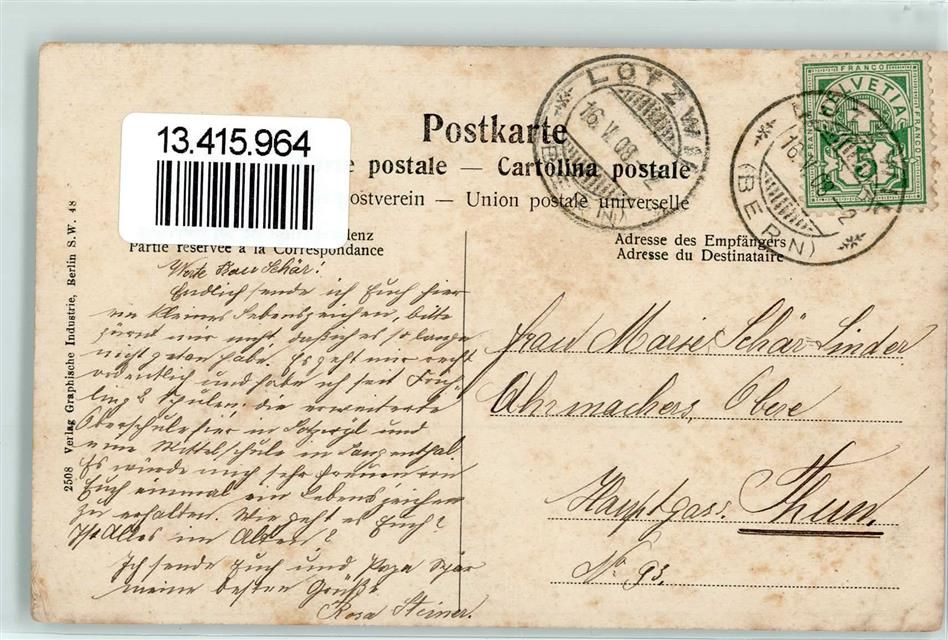 13.415.964
Postkarte
e postale — Cartolina postale
ostverein — Union postale universelle
LOTZWIL
16.V.08
(BERN)
HELVETIA
FRANCO
5
16.V.08
(BERN)
lenz
Partie réservée à la Correspondance
Adresse des Empfängers
Adresse du Destinataire
2508 Verlag Graphische Industrie, Berlin S.W. 48
Werte Frau Schär!
Endlich sende ich Euch hier
ein kleines Lebenszeichen, bitte
zürnt mir nicht, daß ich es so lange
nicht getan habe. Es geht mir recht
ordentlich und habe ich seit Früh-
ling 2 Schulen, die erweiterte
Oberschule hier in Lotzwyl und
eine Mittelschule in Langenthal.
Es würde mich sehr freuen von
Euch einmal ein Lebenszeichen
zu erhalten. Wie geht es Euch?
Ist Alles im Alten?
Ich sende Euch und Papa Schär
meine besten Grüße
Rosa Steiner.
Frau Marie Schär-Linder
Uhrmachers, Obere
Hauptgass. Thun.
No 93.